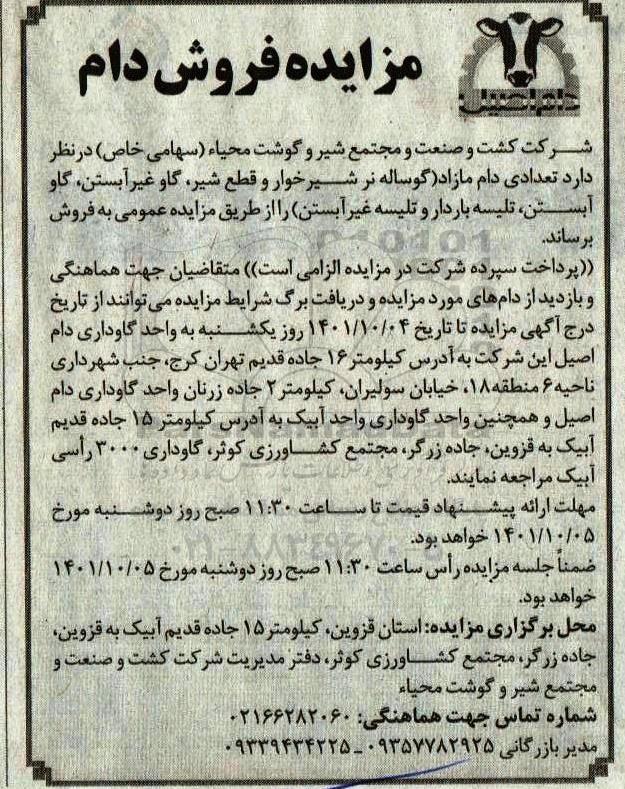 مزایده فروش دام
دام اصیل
شرکت کشت و صنعت و مجتمع شیر و گوشت محیاء (سهامی خاص) در نظر
دارد تعدادی دام مازاد(گوساله نر شیرخوار و قطع شیر، گاو غیرآبستن، گاو
آبستن، تلیسه باردار و تلیسه غیرآبستن) را از طریق مزایده عمومی به فروش
برساند.
((پرداخت سپرده شرکت در مزایده الزامی است)) متقاضیان جهت هماهنگی
و بازدید از دام‌های مورد مزایده و دریافت برگ شرایط مزایده می‌توانند از تاریخ
درج آگهی مزایده تا تاریخ ۱۴۰۱/۱۰/۰۴ روز یکشنبه به واحد گاوداری دام
اصیل این شرکت به آدرس کیلومتر ۱۶ جاده قدیم تهران کرج، جنب شهرداری
ناحیه ۶ منطقه ۱۸، خیابان سولیران، کیلومتر ۲ جاده زرنان واحد گاوداری دام
اصیل و همچنین واحد گاوداری واحد آبیک به آدرس کیلومتر ۱۵ جاده قدیم
آبیک به قزوین، جاده زرگر، مجتمع کشاورزی کوثر، گاوداری ۳۰۰۰ رأسی
آبیک مراجعه نمایند.
مهلت ارائه پیشنهاد قیمت تا ساعت ۱۱:۳۰ صبح روز دوشنبه مورخ
۱۴۰۱/۱۰/۰۵ خواهد بود.
ضمناً جلسه مزایده رأس ساعت ۱۱:۳۰ صبح روز دوشنبه مورخ ۱۴۰۱/۱۰/۰۵
خواهد بود.
محل برگزاری مزایده: استان قزوین، کیلومتر ۱۵ جاده قدیم آبیک به قزوین،
جاده زرگر، مجتمع کشاورزی کوثر، دفتر مدیریت شرکت کشت و صنعت و
مجتمع شیر و گوشت محیاء
شماره تماس جهت هماهنگی: ۰۲۱۶۶۲۸۲۰۶۰
مدیر بازرگانی ۰۹۳۵۷۷۸۲۹۲۵ ـ ۰۹۳۳۹۴۳۴۲۲۵